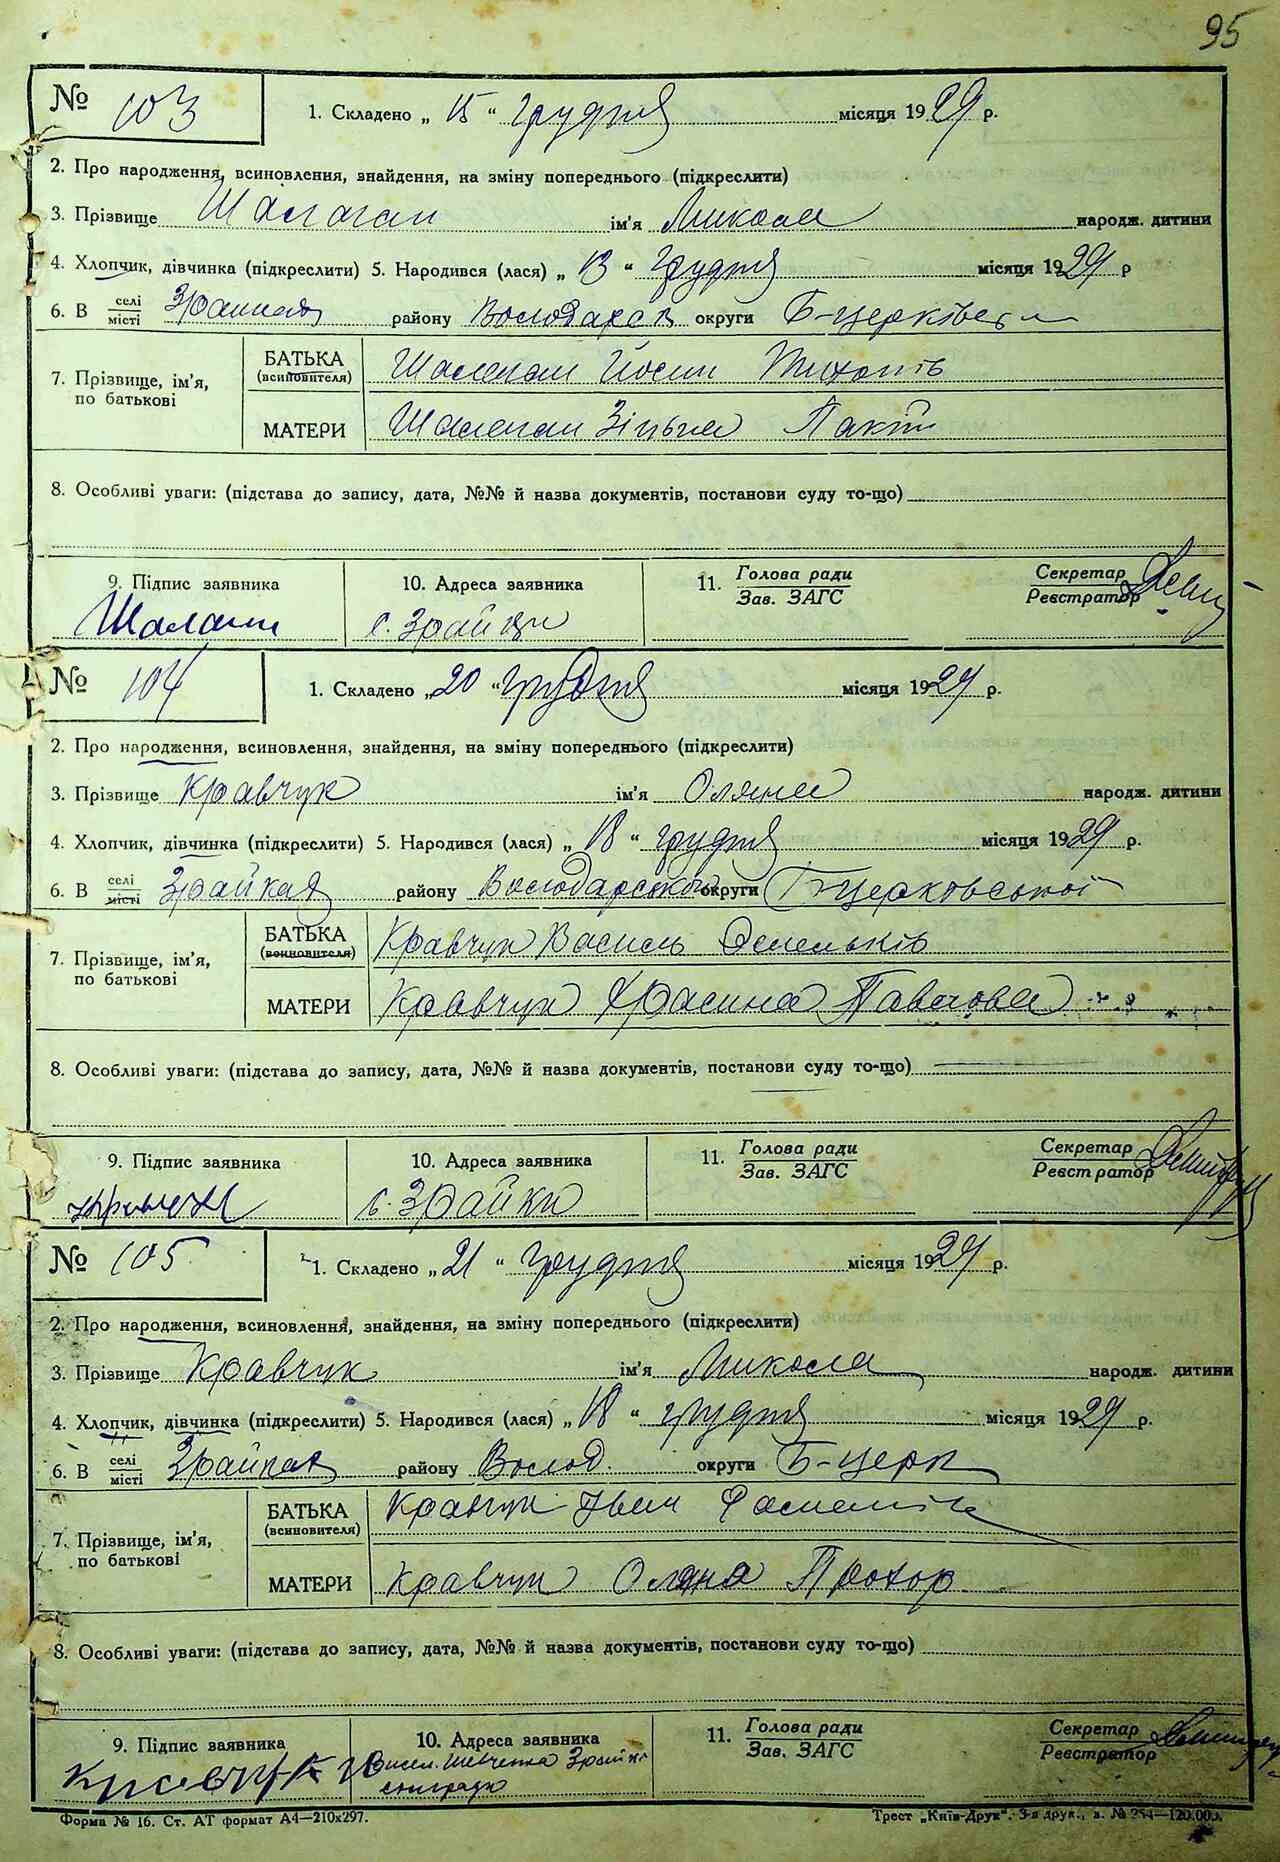 95
№ 103
1. Складено „ 15 “ грудня місяця 1929 р.
2. Про народження, всиновлення, знайдення, на зміну попереднього (підкреслити)
3. Прізвище ім'я Микола народж. дитини
4. Хлопчик, дівчинка (підкреслити) 5. Народився (лася) „ 13 “ грудня місяця 1929 р
6. В селі місті району Володарськ округи Б-церківськ
7. Прізвище, ім'я, по батькові
БАТЬКА (всиновителя) Йосип
МАТЕРИ
8. Особливі уваги: (підстава до запису, дата, №№ й назва документів, постанови суду то-що)
9. Підпис заявника 10. Адреса заявника 11. Голова ради Зав. ЗАГС Секретар Реєстратор
с.
№ 104
1. Складено „ 20 “ грудня місяця 1929 р.
2. Про народження, всиновлення, знайдення, на зміну попереднього (підкреслити)
3. Прізвище Кравчук ім'я Оляна народж. дитини
4. Хлопчик, дівчинка (підкреслити) 5. Народився (лася) „ 18 “ грудня місяця 1929 р.
6. В селі місті Зрайках району Володарського округи Б-церковської
7. Прізвище, ім'я, по батькові
БАТЬКА (всиновителя) Кравчук Василь
МАТЕРИ Кравчук Павлова
8. Особливі уваги: (підстава до запису, дата, №№ й назва документів, постанови суду то-що)
9. Підпис заявника 10. Адреса заявника 11. Голова ради Зав. ЗАГС Секретар Реєстратор
с. Зрайки
№ 105
1. Складено „ 21 “ грудня місяця 1929 р.
2. Про народження, всиновлення, знайдення, на зміну попереднього (підкреслити)
3. Прізвище Кравчук ім'я Микола народж. дитини
4. Хлопчик, дівчинка (підкреслити) 5. Народився (лася) „ 18 “ грудня місяця 1929 р.
6. В селі місті Зрайках району Волод. округи Б-церк
7. Прізвище, ім'я, по батькові
БАТЬКА (всиновителя) Кравчук Іван
МАТЕРИ Кравчук Оляна Прохор
8. Особливі уваги: (підстава до запису, дата, №№ й назва документів, постанови суду то-що)
9. Підпис заявника 10. Адреса заявника 11. Голова ради Зав. ЗАГС Секретар Реєстратор
Кравчук Шевченка
Форма № 16. Ст. АТ формат А4—210х297. Трест „Київ-Друк“. 3-я друк., з. № 254—120.000.